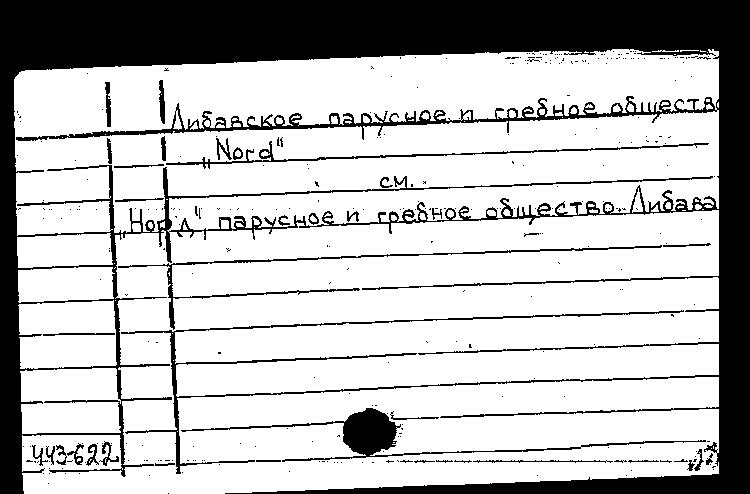 Либавское парусное и гребное общество
„Nord“
см.
„Норд“, парусное и гребное общество. Либава
443-622